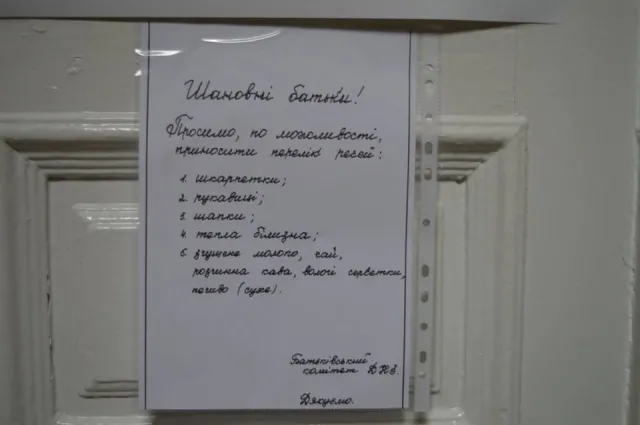 Шановні батьки!
Просимо, по можливості,
приносити перелік речей:
1. шкарпетки;
2. рукавиці;
3. шапки;
4. тепла білизна;
5. згущене молоко, чай,
розчинна кава, вологі серветки,
печиво (сухе).
Батьківський
комітет ДНЗ.
Дякуємо.